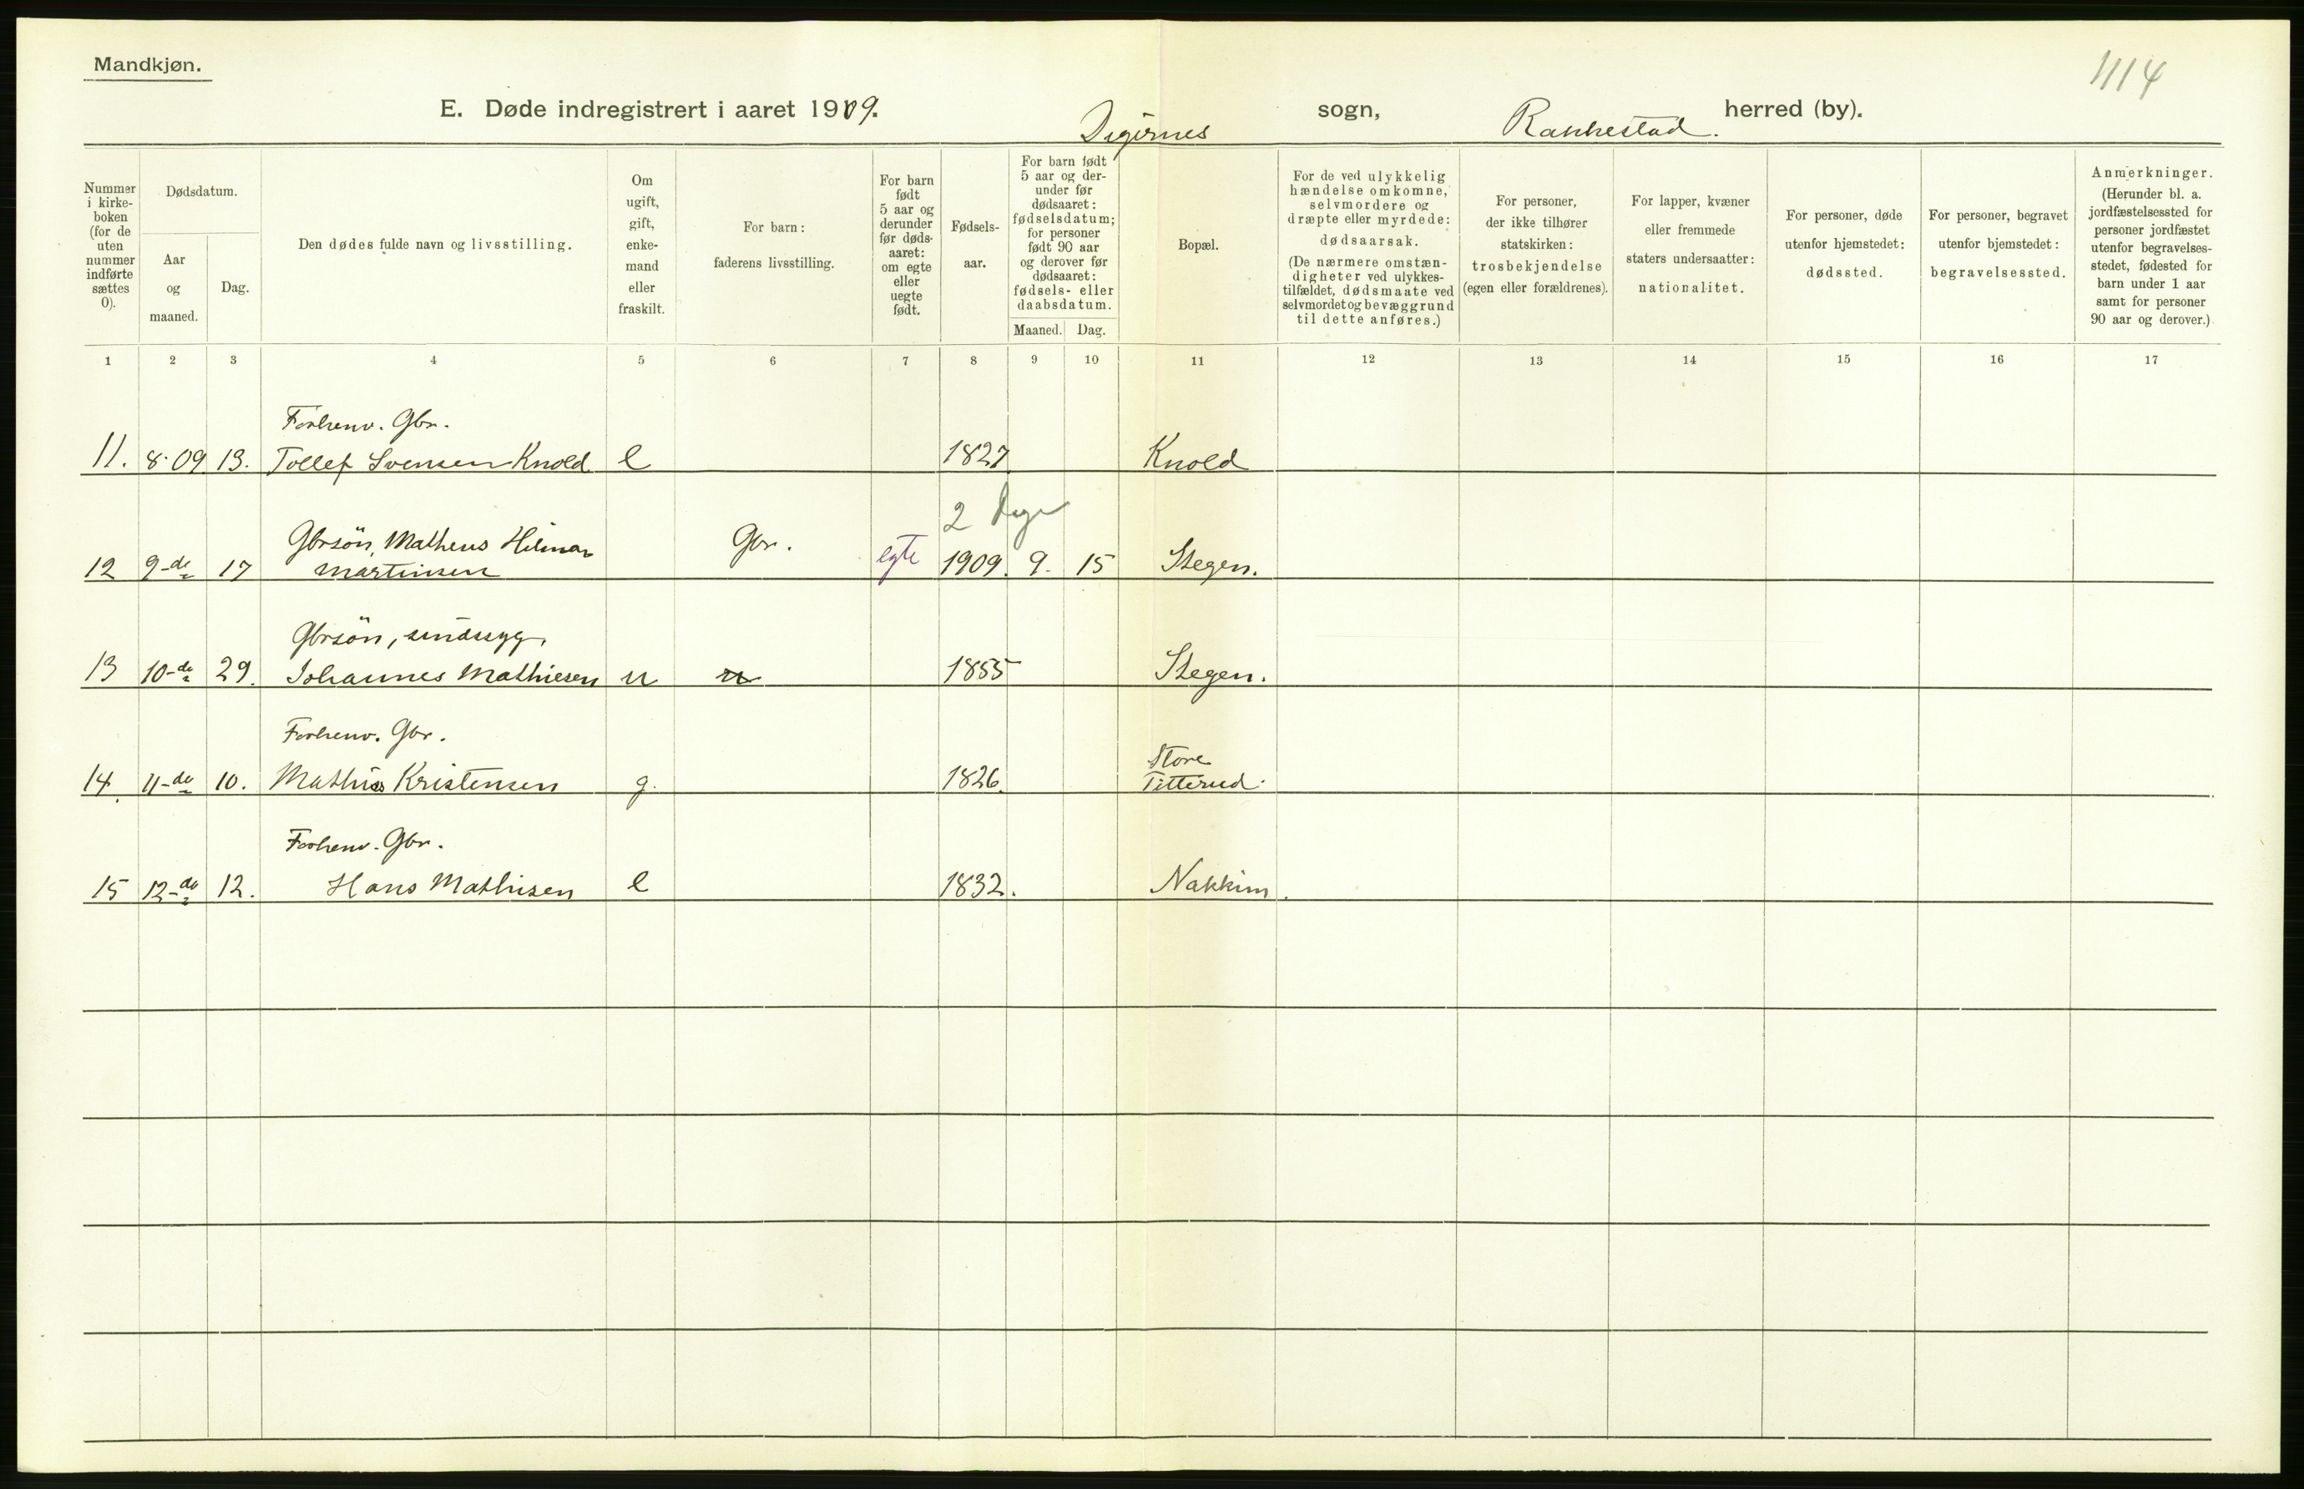 Mandkjøn.
1114
E. Døde indregistrert i aaret 1909. Degernes sogn, Rakkestad. herred (by).
Nummer i kirke- boken (for de uten nummer indførte sættes 0).
Dødsdatum.
Aar og maaned.
Dag.
Den dødes fulde navn og livsstilling.
Om ugift, gift, enke- mand eller fraskilt.
For barn: faderens livsstilling.
For barn født 5 aar og derunder før døds- aaret: om egte eller uegte født.
Fødsels- aar.
For barn født 5 aar og der- under før dødsaaret: fødselsdatum; for personer født 90 aar og derover før dødsaaret: fødsels- eller daabsdatum.
Maaned. Dag.
Bopæl.
For de ved ulykkelig hændelse omkomne, selvmordere og dræpte eller myrdede: dødsaarsak. (De nærmere omstæn- digheter ved ulykkes- tilfældet, dødsmaate ved selvmordet og bevæggrund til dette anføres.)
For personer, der ikke tilhører statskirken: trosbekjendelse (egen eller forældrenes).
For lapper, kvæner eller fremmede staters undersaatter: nationalitet.
For personer, døde utenfor hjemstedet: dødssted.
For personer, begravet utenfor bjemstedet: begravelsessted.
Anmerkninger. (Herunder bl. a. jordfæstelsessted for personer jordfæstet utenfor begravelses- stedet, fødested for barn under 1 aar samt for personer 90 aar og derover.)
1 2 3 4 5 6 7 8 9 10 11 12 13 14 15 16 17
Forhenv. Gbr.
11. 8-09 13. Tollef Svensen Knold e 1827. Knold
2 Dage
Gbrsøn, Matheus Hilmar Gbr.
12 9-de 17 Martinsen egte 1909. 9. 15 Stegen.
Gbrsøn, sindssyg,
13 10-de 29. Johannes Mathiesen u u 1855 Stegen.
Forhenv. Gbr. Store
14. 11-de 10. Mathias Kristensen g. 1826. Titterud.
Forhenv. Gbr.
15 12-de 12. Hans Mathisen e 1832. Nakkim.